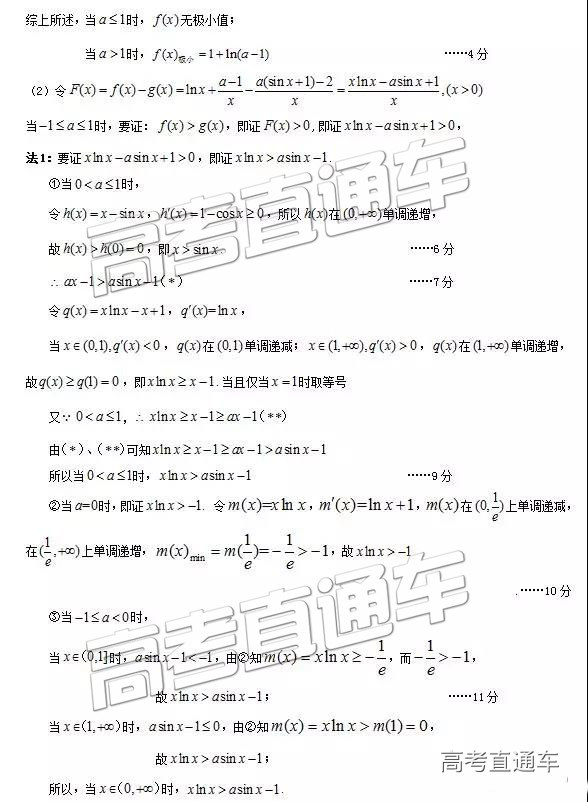 综上所述，当a≤1时，f(x)无极小值；
当a>1时，f(x)极小=1+ln(a−1) ······4分
（2）令F(x)=f(x)−g(x)=ln x+\frac{a−1}{x}−\frac{a(sin x+1)−2}{x}=\frac{xln x−asin x+1}{x},(x>0)
当−1≤a≤1时，要证：f(x)>g(x)，即证F(x)>0,即证xln x−asin x+1>0，
法1：要证xln x−asin x+1>0，即证xln x>asin x−1.
①当0<a≤1时，
令h(x)=x−sin x，h′(x)=1−cosx≥0，所以h(x)在(0,+∞)单调递增，
故h(x)>h(0)=0，即x>sin x. ······6分
∴ax−1>asin x−1(*) ······7分
令q(x)=xln x−x+1，q′(x)=ln x，
当x∈(0,1),q′(x)<0，q(x)在(0,1)单调递减；x∈(1,+∞),q′(x)>0，q(x)在(1,+∞)单调递增，
故q(x)≥q(1)=0，即xln x≥x−1.当且仅当x=1时取等号
又∵0<a≤1，∴xln x≥x−1≥ax−1(**)
由(*)、(**)可知xln x≥x−1≥ax−1>asin x−1
所以当0<a≤1时，xln x>asin x−1 ······9分
②当a=0时,即证xln x>−1. 令m(x)=x ln x，m′(x)=ln x+1，m(x)在(0,\frac{1}{e})上单调递减，
在(\frac{1}{e},+∞)上单调递增，m(x)min=m(\frac{1}{e})=−\frac{1}{e}>−1，故xln x>−1
.······10分
③当−1≤a<0时，
当x∈(0,1]时，asin x−1<−1，由②知m(x)=xln x≥−\frac{1}{e}，而−\frac{1}{e}>−1，
故xln x>asin x−1； ······11分
当x∈(1,+∞)时，asin x−1≤0，由②知m(x)=xln x>m(1)=0，
故xln x>asin x−1；
所以，当x∈(0,+∞)时，xln x>asin x−1.
高考直通车
高考直通车
高考直通车